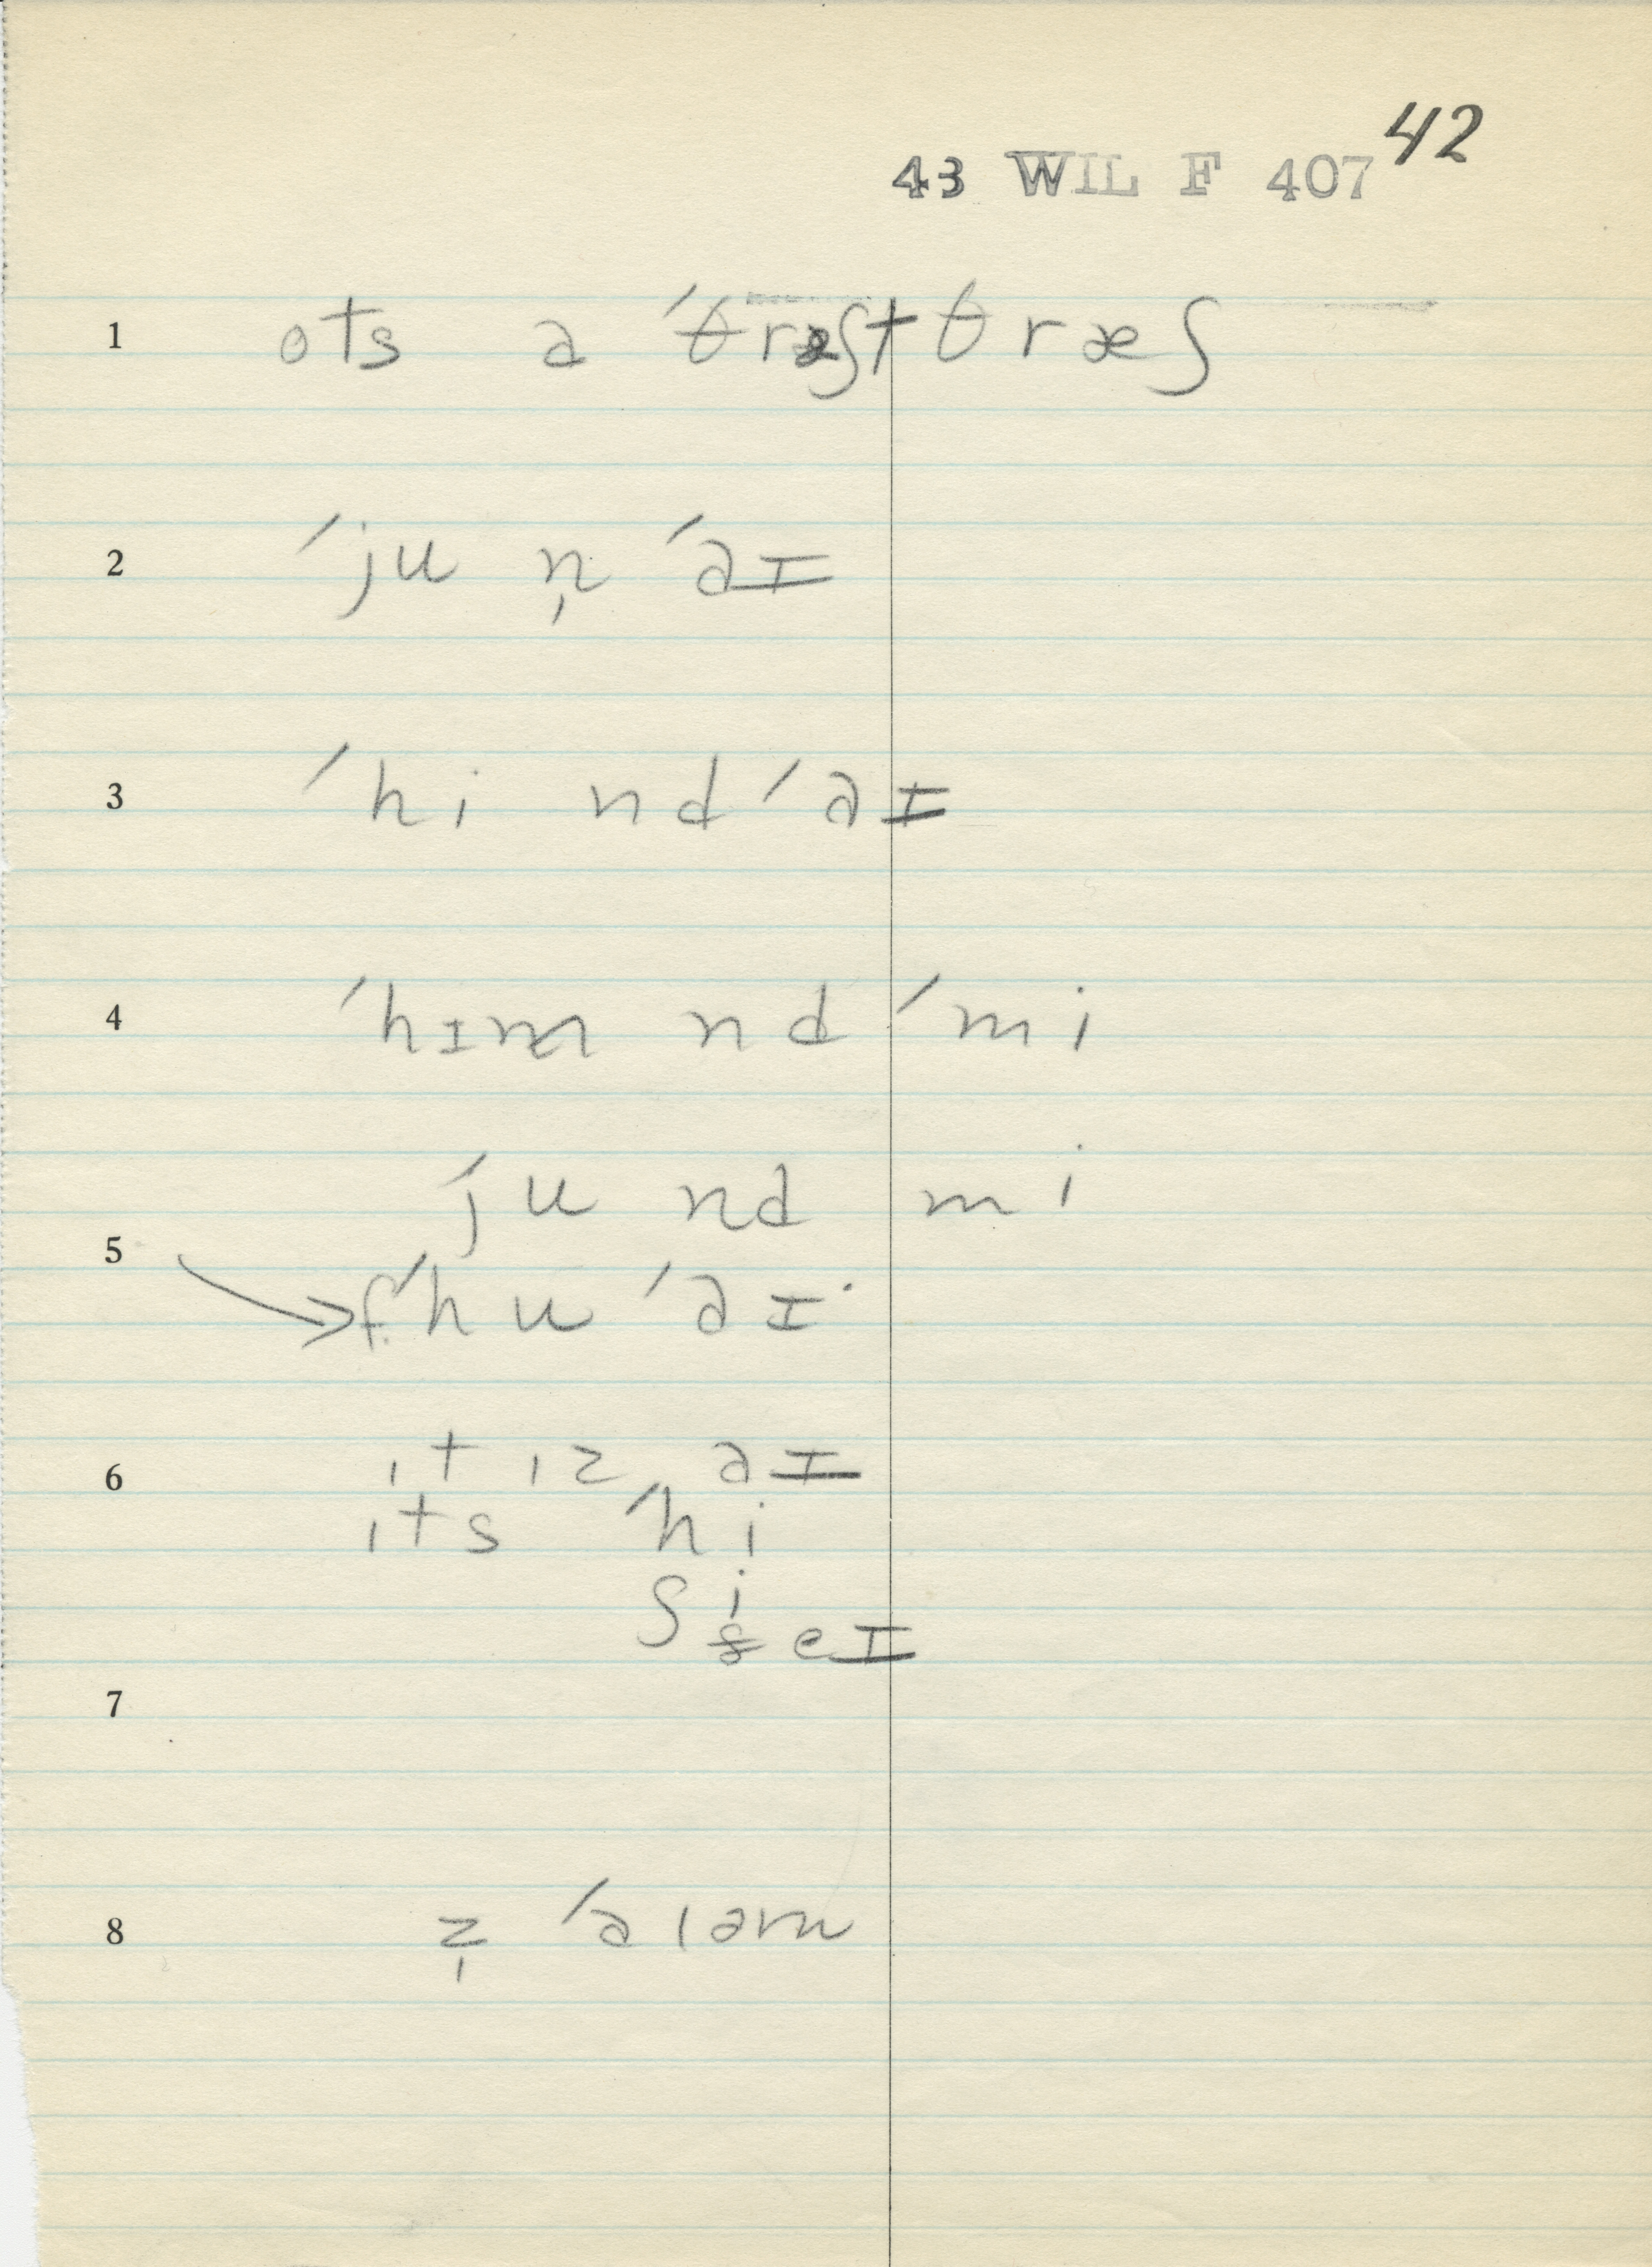 42
43 WIL F 407
1 ots a ˈθræʃt θræʃ
2 ˈju n̩ ˈaɪ
3 ˈhi nd ˈaɪ
4 ˈhɪm nd ˈmi
ˈju nd mi
5
f. ˈhu ˈaɪ
6 ɪt ɪz aɪ
ɪts ˈhi
ʃi
eɪ
7
8 z̩ ˈa